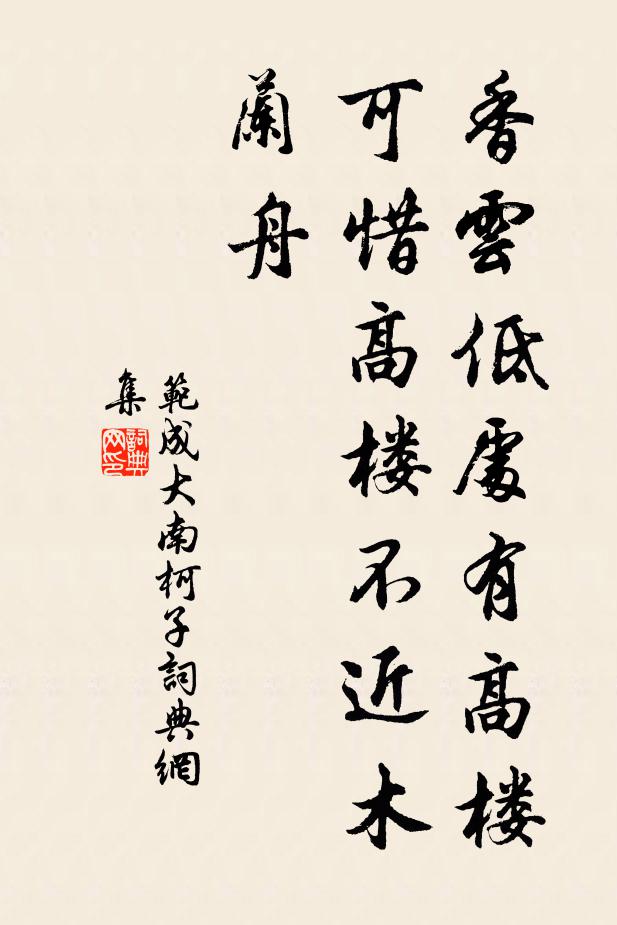 香雲低處有高楼
可惜高楼不近木
蘭舟
範成大南柯子詞典網
集
詞典
网印